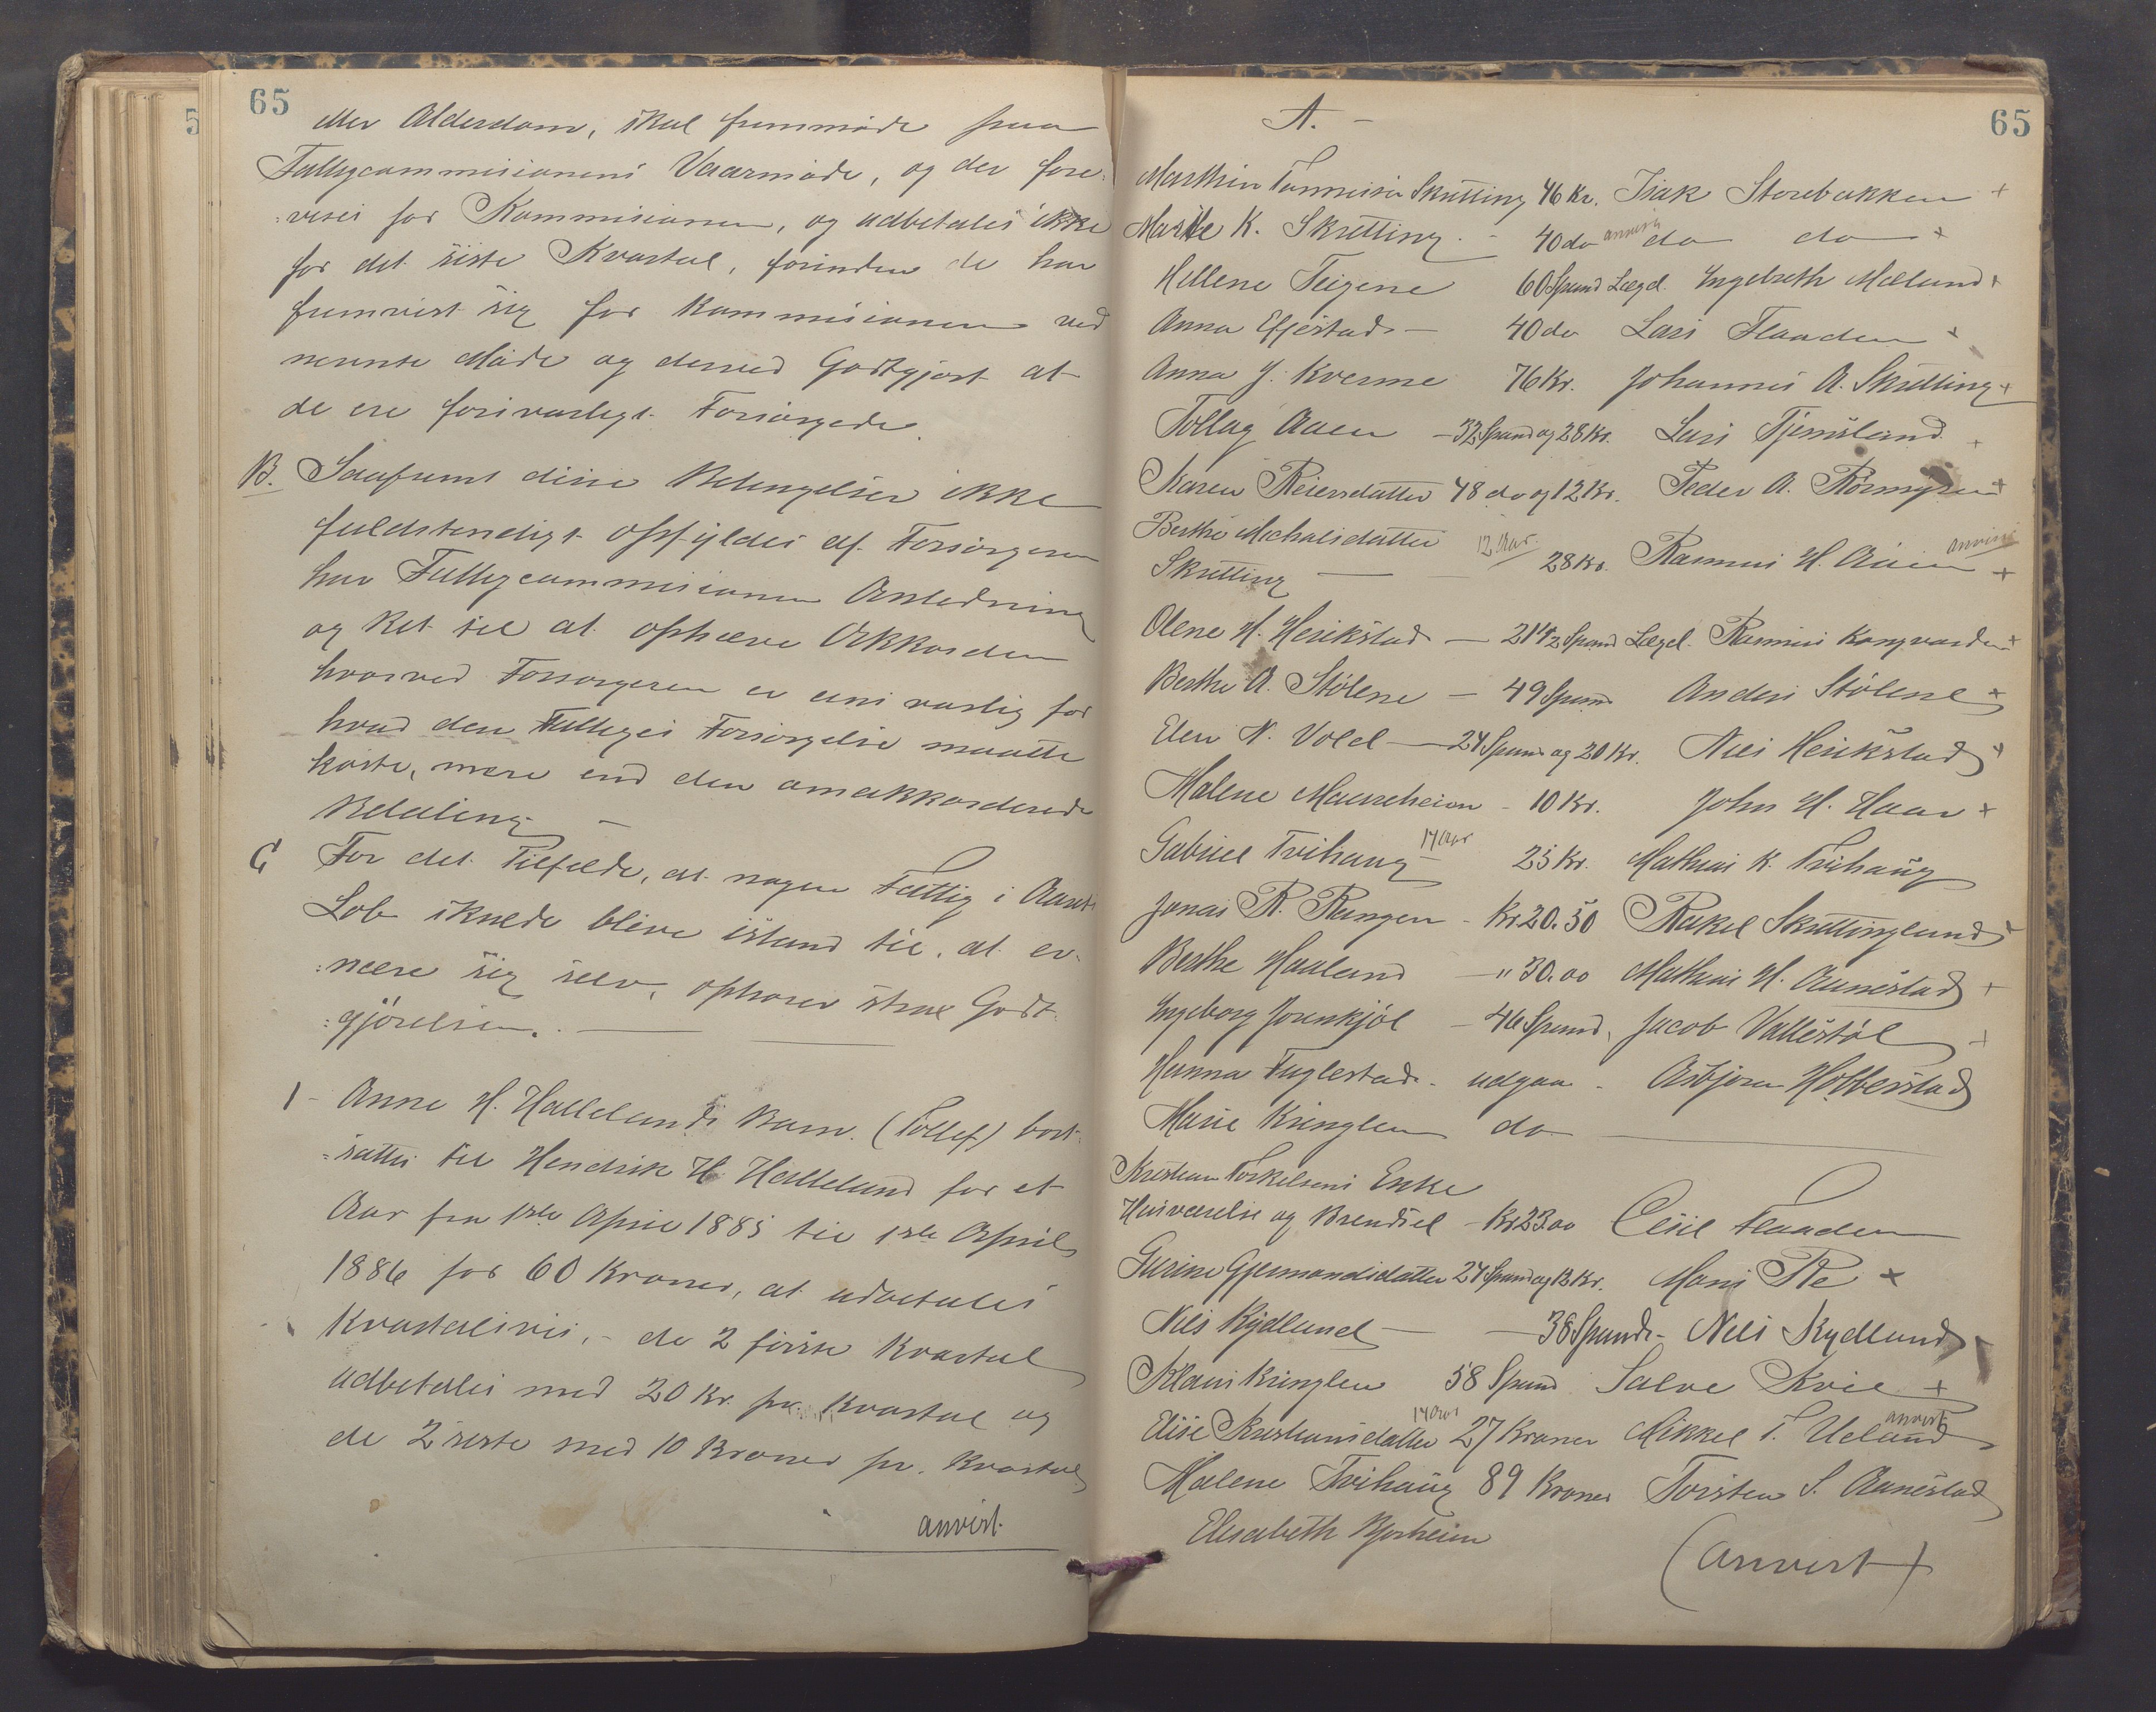 65
eller Alderdom, skal fremmøde paa
Fattigcommisionens Vaarmøde, og der fore=
=vises for Kommisionen, og udbetales ikke
for det siste Kvartal, forinden de har
fremvist sig for Kommisionen ved
nevnte Møde og derved Godtgjort at
de ere forsvarligt Forsørgede.
B. Saafremt disse Betingelser ikke
fuldstendigt opfyldes af Forsørgeren
har Fattigcommisionen Anledning
og Ret til at ophæve Akkorden
hvorved Forsørgeren er ansvarlig for
hvad den Fattiges Forsørgelse maatte
koste, mere end den omakkorderede
Betaling. —
C For det Tilfælde, at nogen Fattig i Aarets
Løb skulde blive istand til at er=
=nære sig selv, ophører strax Godt=
=gjørelsen. —
1 - Anne H. Hallelands Barn (Tollef) bort=
=sattes til Hendrik H. Halleland for et
Aar fra 1ste April 1885 til 1ste April
1886 for 60 Kroner, at udbetales
Kvartalsvis, - de 2 første Kvartal
udbetales med 20 Kr. pr. Kvartal og
de 2 siste med 10 Kroner pr. Kvartal
anvist.
65
A. -
Marthin Tønnesen Skretting 46 Kr. Isak Storebakken +
Marthe K. Skretting - 40 do anvist do do +
Hellene Teigene 60 Spand Lægd. Ingebreth Mælund +
Anna Efjestad - 40 do Lars Flaaden +
Anna J. Kverme 76 Kr. Johannes A. Skretting +
Tollag Aaen - 32 Spand og 28 Kr. Lars Tjemsland +
Karen Reiersdatter 48 do og 12 Kr. Peder A. +
Berthe Michalsdatter 12 Aar. anvist
Skretting — 28 Kr. Rasmus H. Aaen +
Olene H. Herikstad — 21 1/2 Spand Lægd. Rasmus Kongvarden +
Berthe A. Stølene — 49 Spand Anders Stølene +
Elen N. Vold — 24 Spand og 20 Kr. Nils Herikstad +
Malene Maurheien - 10 Kr. John H. Haar +
Gabriel Tvihaug 14 Aar 25 Kr. Mathias K. Tvihaug
Jonas R. Rangen - Kr. 20.50 Rakel Skrettingland +
Berthe Haaland — " 30.00 Mathias H. Aanestad +
Ingeborg Jorenkjøl — 46 Spand, Jacob Vallestøl +
Hanna Fuglestad. udgaar - Asbjørn Høbberstad
Marie Kringlen do —
Kristian Torkelsens Enke
Husværelse og Brendsel - Kr 23.00 Cesil Flaaden
Gurine Gjermandsdatter 24 Spand og 12 Kr. Mons Re +
Nils Rydland — 38 Spand - Nils Rydland
Klaus Kringlen 58 Spand Salve Kvie +
Elise Kristiansdatter 14 Aar 27 Kroner Mikkel T. Ueland anvist
Malene Tvihaug 89 Kroner Torsten S. Aanestad
Elisabeth Bjorheim
(anvist)